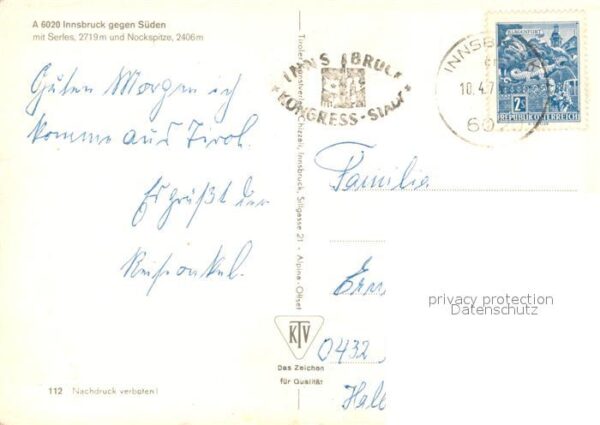 A 6020 Innsbruck gegen Süden
mit Serles, 2719 m und Nockspitze, 2406 m
Guten Morgen ich
komme aus Tirol.
Es grüßt der
Reiseonkel.
112 Nachdruck verboten!
Innsbruck, Sillgasse 21 • Alpina-Offset
KTV
Das Zeichen
für Qualität
INNSBRUCK
KONGRESS-STADT
INNSB
10.4.7
60
KLAGENFURT
2S
REPUBLIK ÖSTERREICH
Familie
0432
Hale
privacy protection
Datenschutz